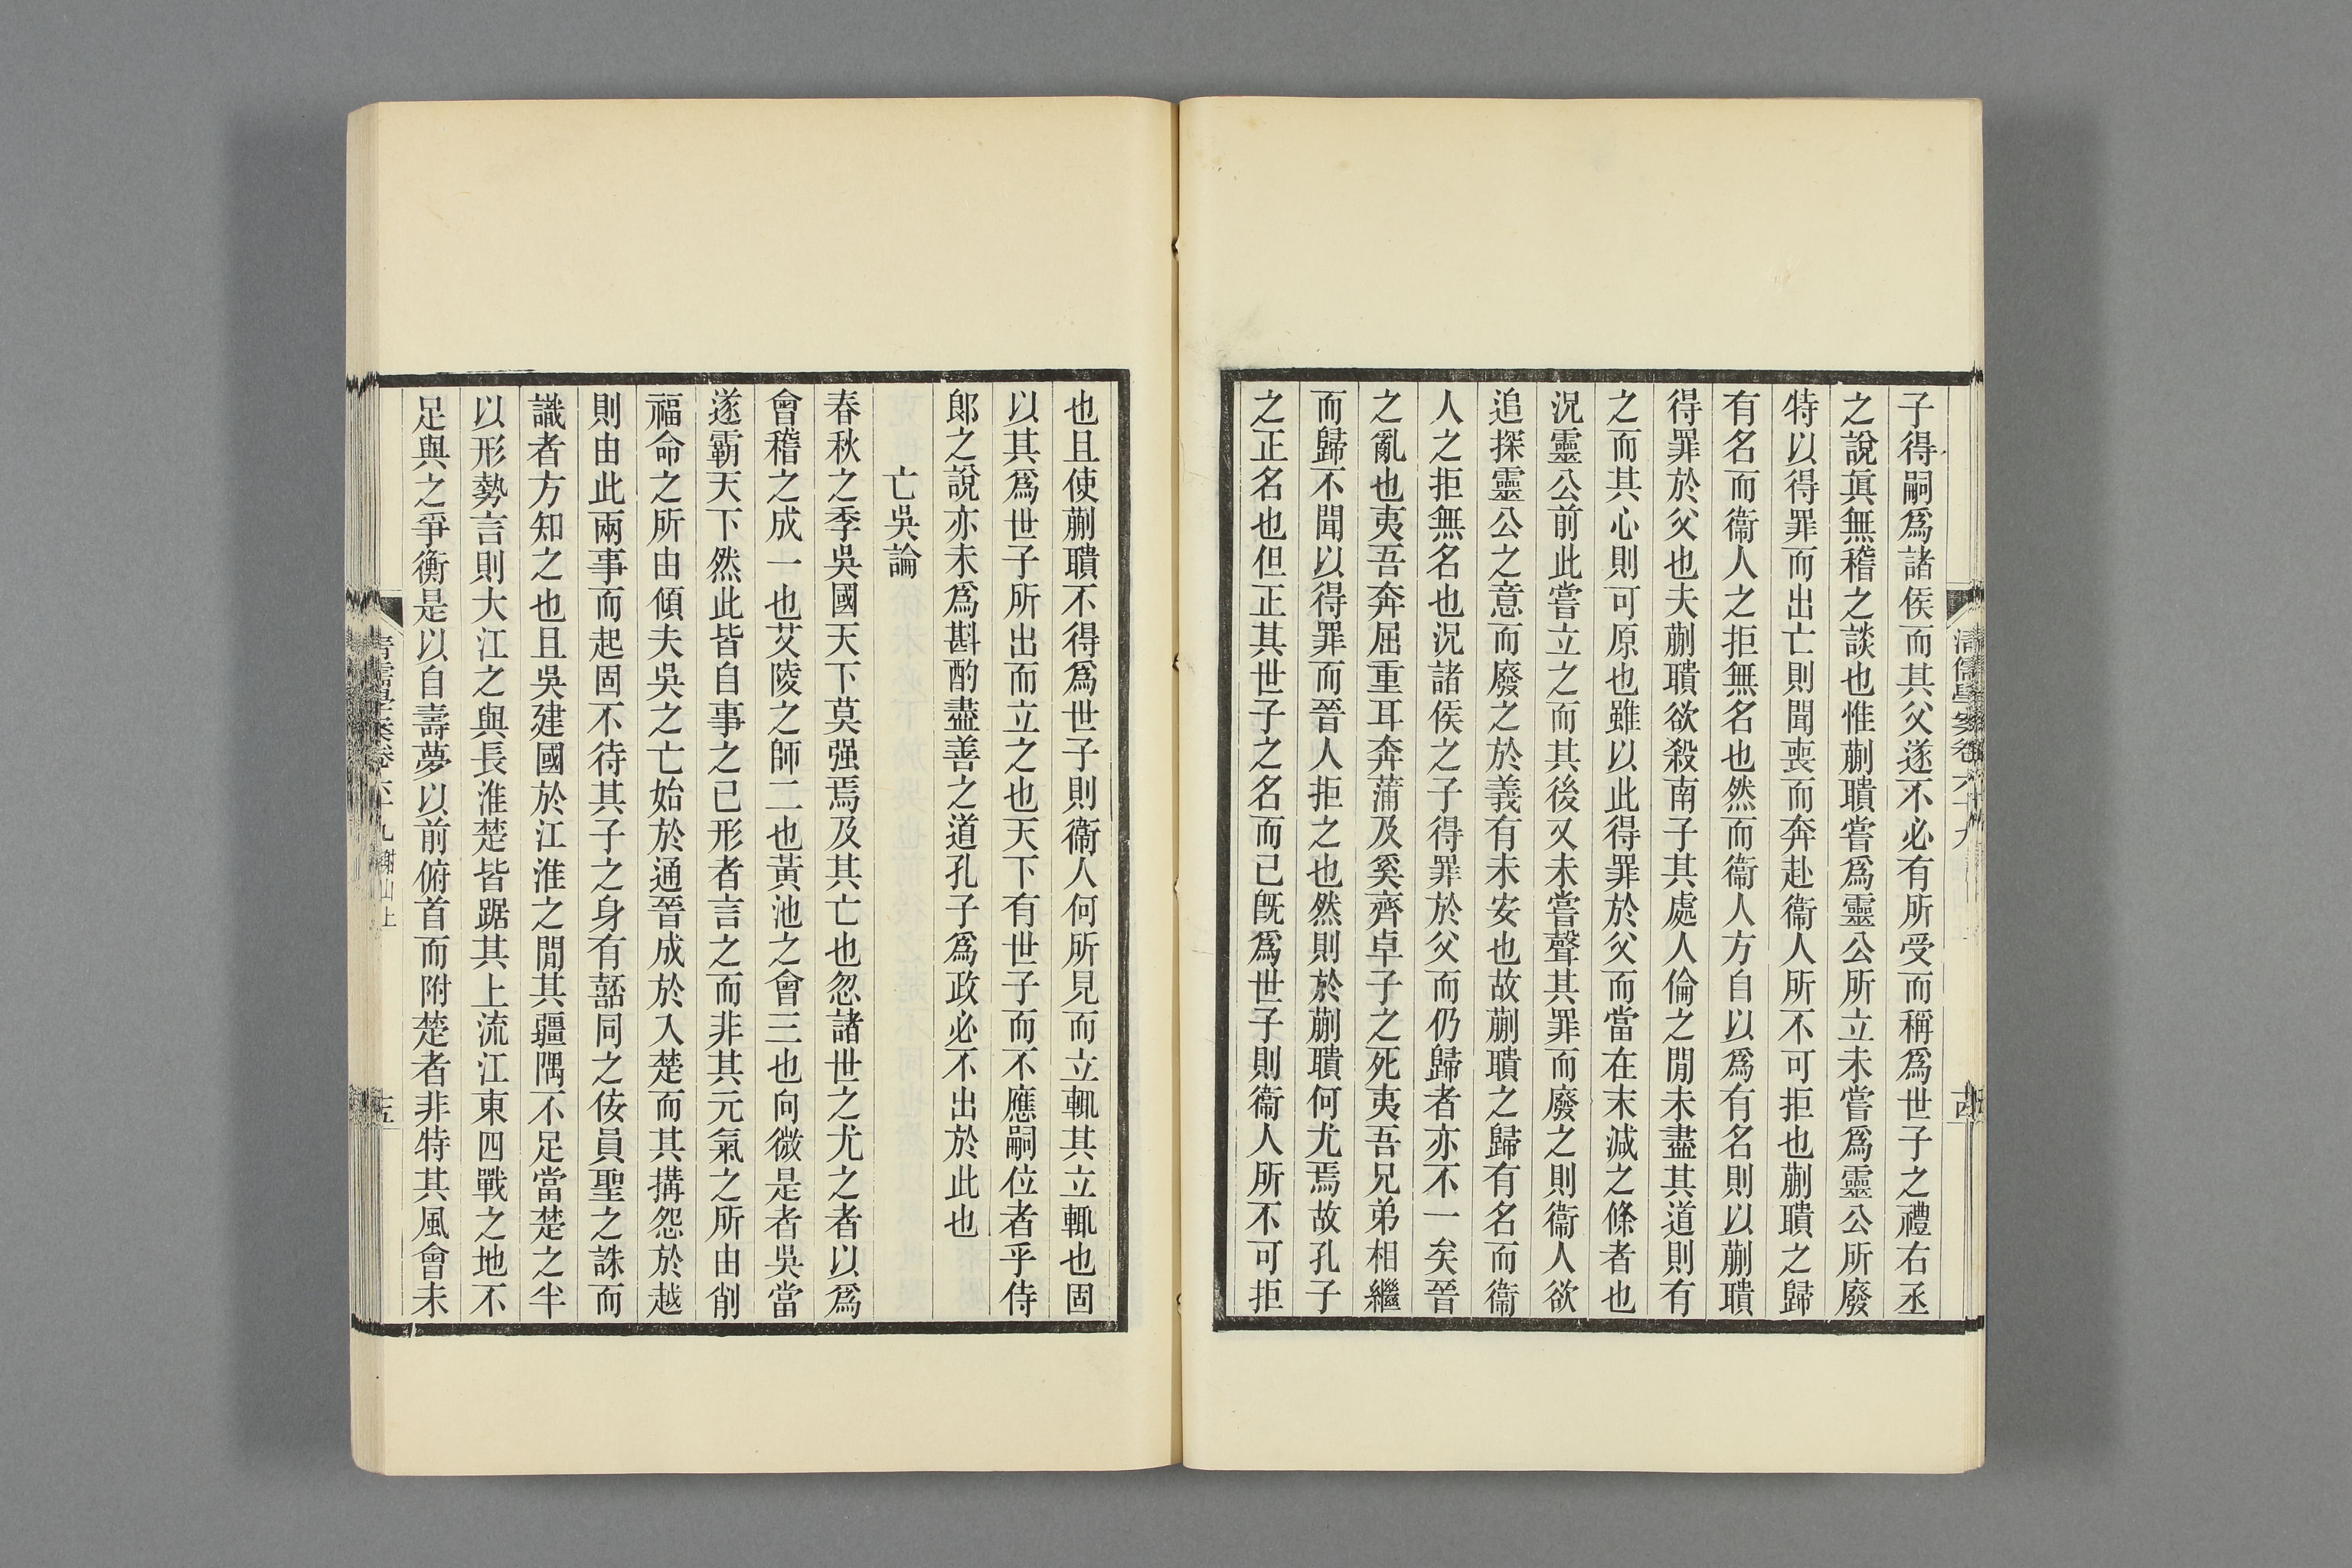 子得嗣爲諸侯而其父遂不必有所受而稱爲世子之禮右丞
之說眞無稽之談也惟蒯聵嘗爲靈公所立未嘗爲靈公所廢
特以得罪而出亡則聞喪而奔赴衞人所不可拒也蒯聵之歸
有名而衞人之拒無名也然而衞人方自以爲有名則以蒯聵
得罪於父也夫蒯聵欲殺南子其處人倫之閒未盡其道則有
之而其心則可原也雖以此得罪於父而當在末減之條者也
況靈公前此嘗立之而其後又未嘗聲其罪而廢之則衞人欲
追探靈公之意而廢之於義有未安也故蒯聵之歸有名而衞
人之拒無名也況諸侯之子得罪於父而仍歸者亦不一矣晉
之亂也夷吾奔屈重耳奔蒲及奚齊卓子之死夷吾兄弟相繼
而歸不聞以得罪而晉人拒之也然則於蒯聵何尤焉故孔子
之正名也但正其世子之名而已旣爲世子則衞人所不可拒
也且使蒯聵不得爲世子則衞人何所見而立輒其立輒也固
以其爲世子所出而立之也天下有世子而不應嗣位者乎侍
郞之說亦未爲斟酌盡善之道孔子爲政必不出於此也
亡吳論
春秋之季吳國天下莫强焉及其亡也忽諸世之尤之者以爲
會稽之成一也艾陵之師二也黃池之會三也向微是者吳當
遂霸天下然此皆自事之已形者言之而非其元氣之所由削
福命之所由傾夫吳之亡始於通晉成於入楚而其搆怨於越
則由此兩事而起固不待其子之身有嚭同之佞員聖之誅而
識者方知之也且吳建國於江淮之閒其疆隅不足當楚之半
以形勢言則大江之與長淮楚皆踞其上流江東四戰之地不
足與之爭衡是以自壽夢以前俯首而附楚者非特其風會未
清儒學案卷六十九 謝山上